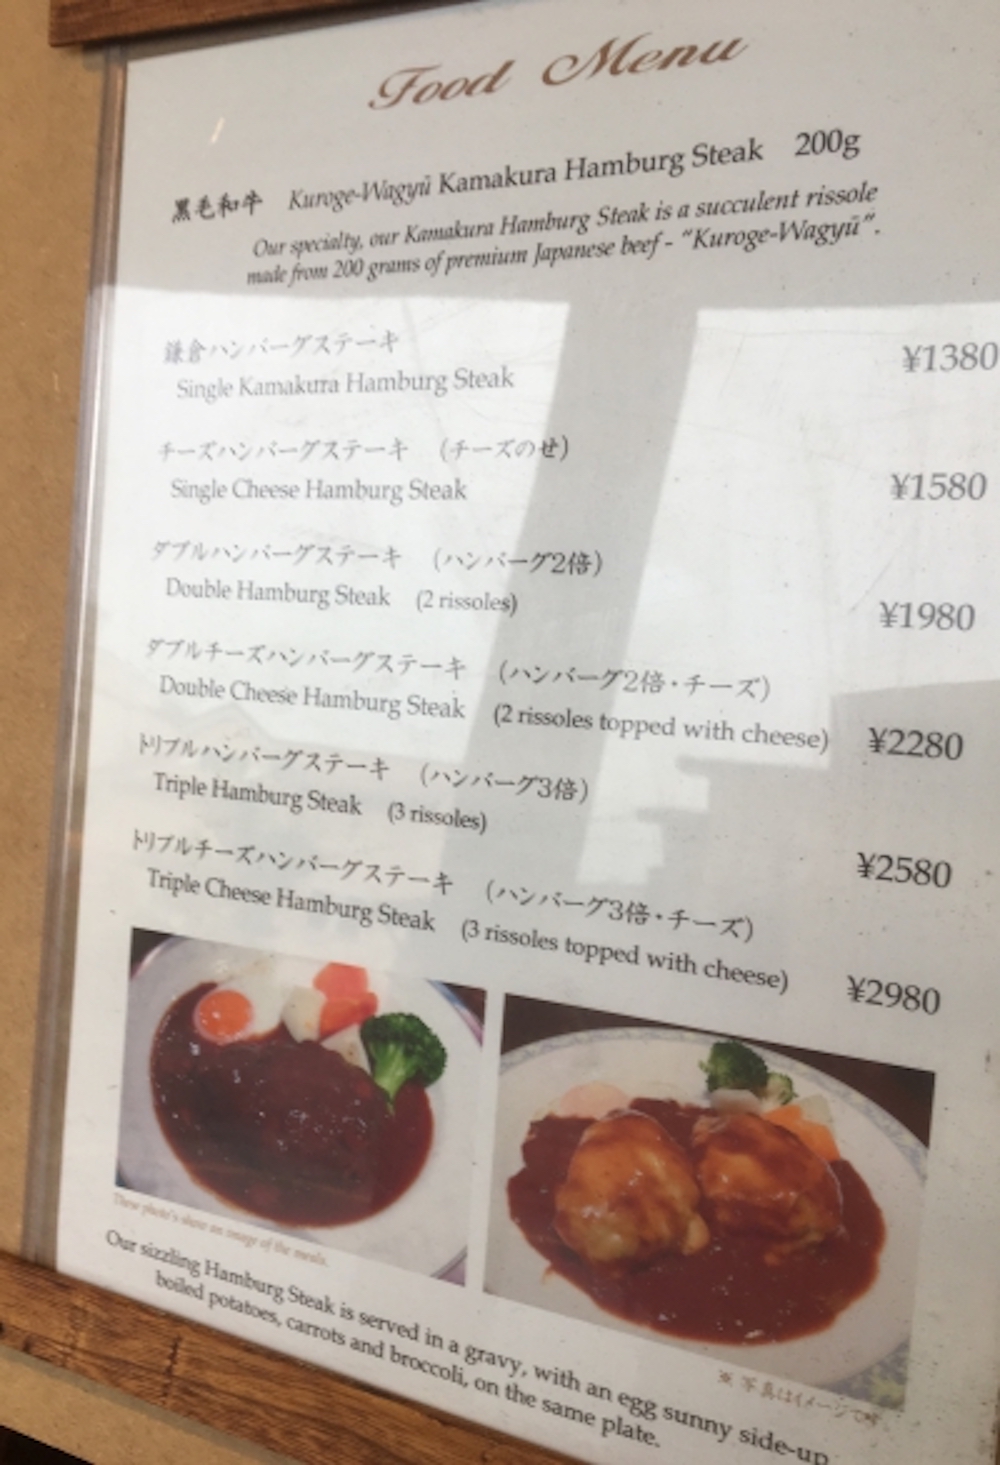 Food Menu
黒毛和牛 Kuroge-Wagyū Kamakura Hamburg Steak 200g
Our specialty, our Kamakura Hamburg Steak is a succulent rissole
made from 200 grams of premium Japanese beef - "Kuroge-Wagyū".
鎌倉ハンバーグステーキ
Single Kamakura Hamburg Steak ¥1380
チーズハンバーグステーキ (チーズのせ)
Single Cheese Hamburg Steak ¥1580
ダブルハンバーグステーキ (ハンバーグ2倍)
Double Hamburg Steak (2 rissoles) ¥1980
ダブルチーズハンバーグステーキ (ハンバーグ2倍・チーズ)
Double Cheese Hamburg Steak (2 rissoles topped with cheese) ¥2280
トリプルハンバーグステーキ (ハンバーグ3倍)
Triple Hamburg Steak (3 rissoles) ¥2580
トリプルチーズハンバーグステーキ (ハンバーグ3倍・チーズ)
Triple Cheese Hamburg Steak (3 rissoles topped with cheese) ¥2980
These photo's show an image of the meals.
※写真はイメージです
Our sizzling Hamburg Steak is served in a gravy, with an egg sunny side-up
boiled potatoes, carrots and broccoli, on the same plate.